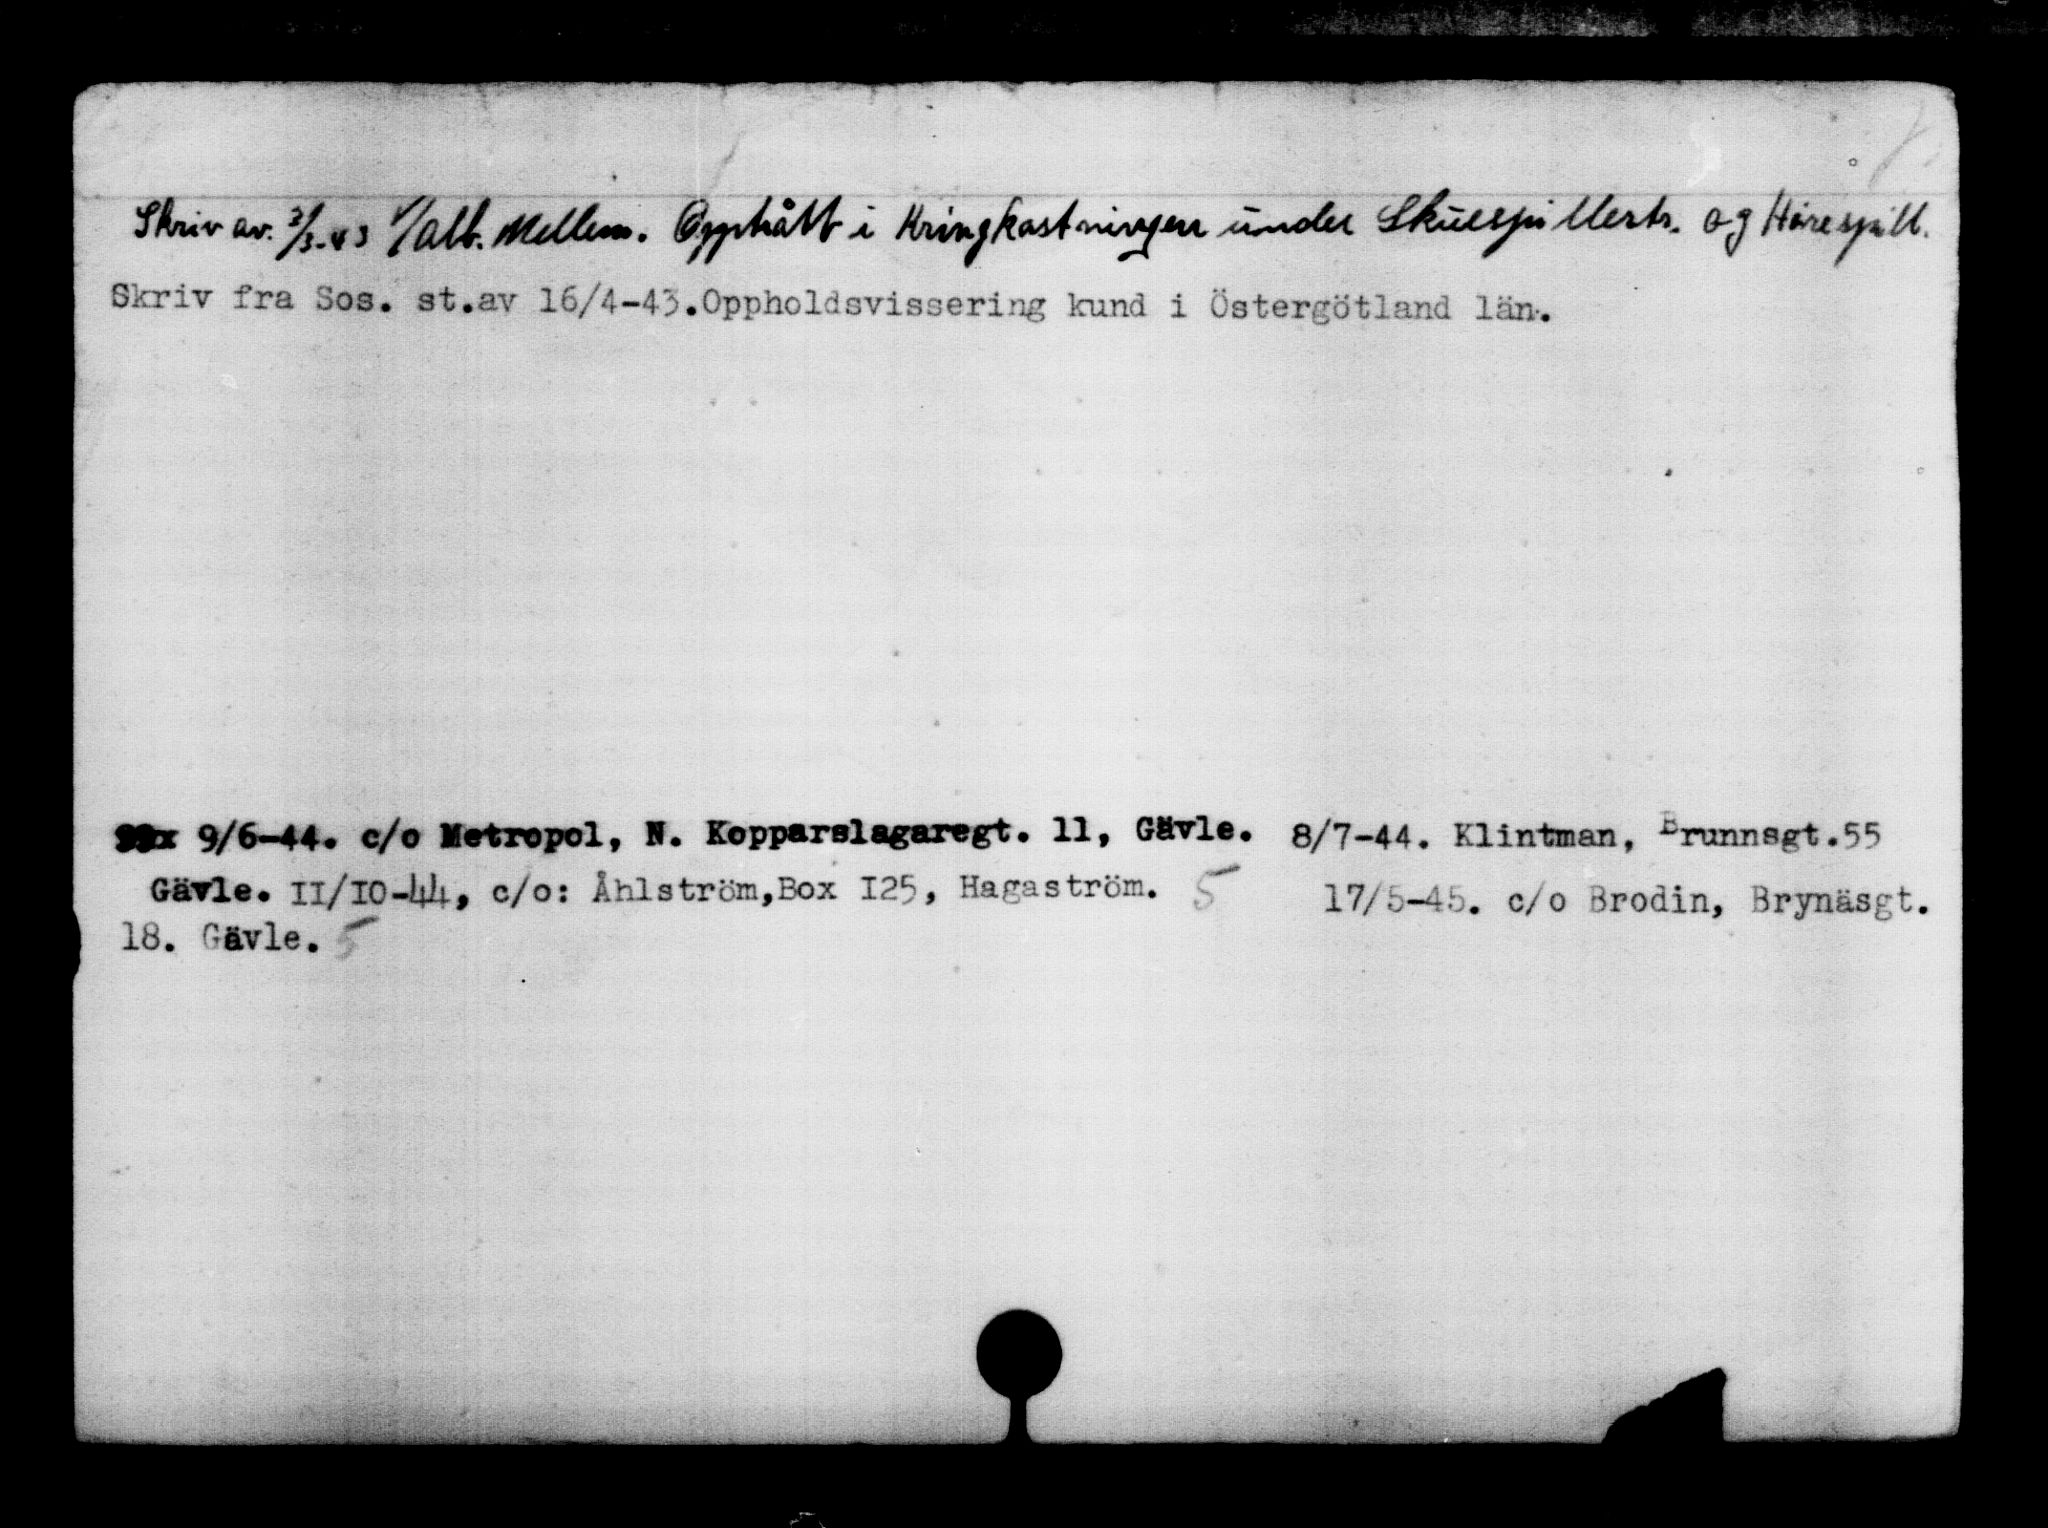 Skriv av. 3/3-43 f/alb. Mellem. Opptrått i Kringkastningen under Skuespillerstr. og Hörespill.
Skriv fra Sos. st.av 16/4-43.Oppholdsvissering kund i Östergötland län.
9/6-44. c/o Metropol, N. Kopparslagaregt. 11, Gävle. 8/7-44. Klintman, Brunnsgt.55
Gävle. II/IO-44, c/o: Åhlström,Box I25, Hagaström. 5 17/5-45. c/o Brodin, Brynäsgt.
18. Gävle. 5